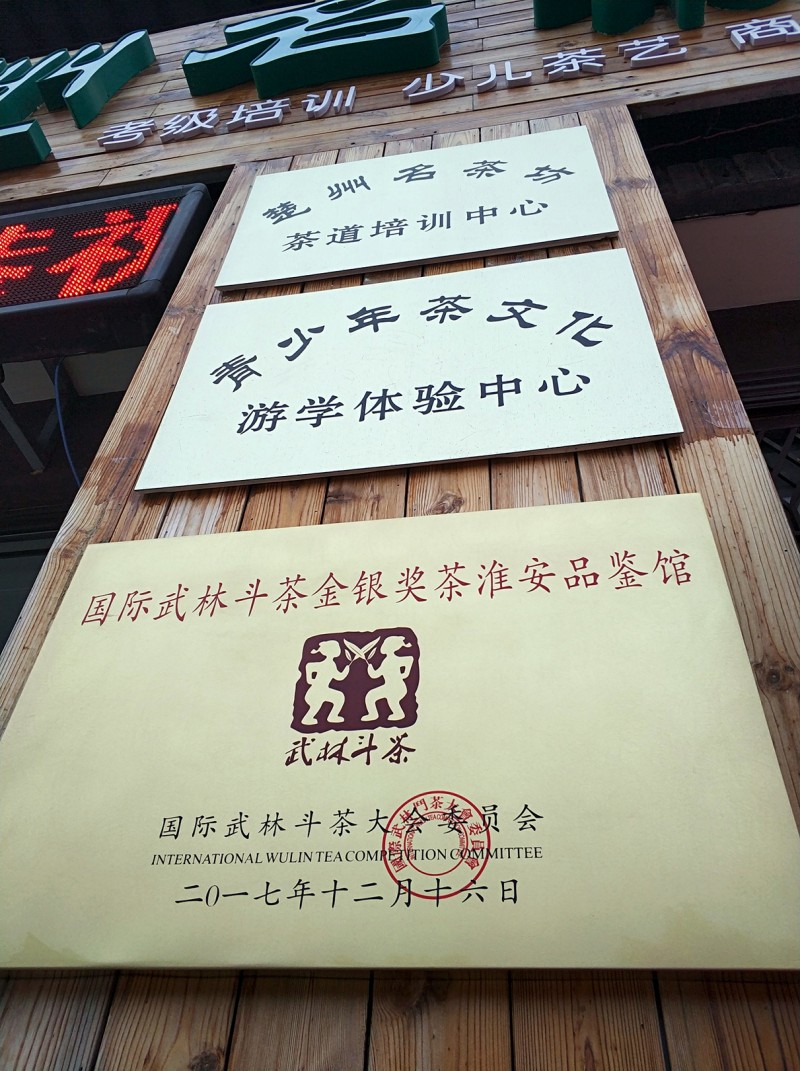 考级培训 少儿茶艺 商
楚州名茶坊
茶道培训中心
青少年茶文化
游学体验中心
国际武林斗茶金银奖茶淮安品鉴馆
武林斗茶
国际武林斗茶大会委员会
INTERNATIONAL WULIN TEA COMPETITION COMMITTEE
二0一七年十二月十六日
國際武林鬥茶大會委員會